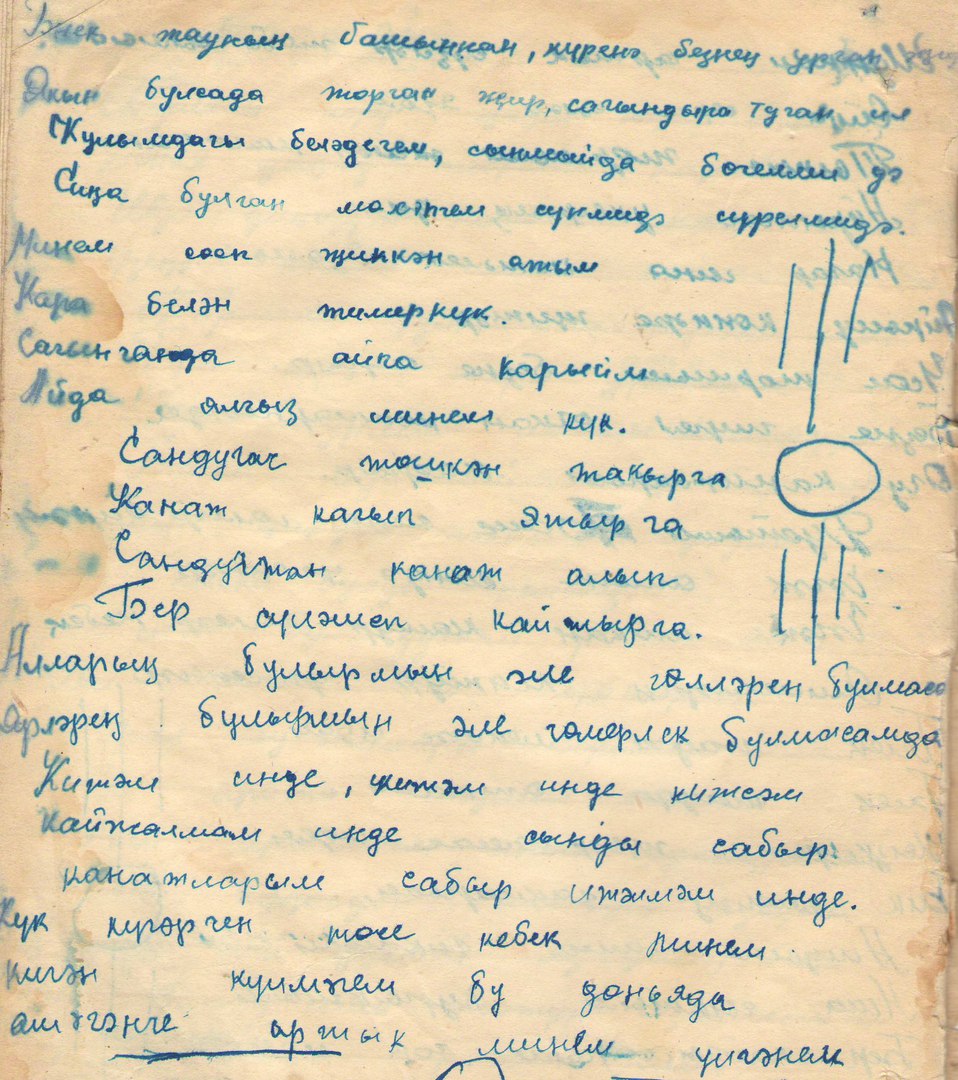 Биек тауның башыннан, күренә безнең урган
Якын булсада торган җир, сагындыра туган ил
Кулымдагы беләдегем, сынмыйда бөгелми дә
Сиңа булган мәхәббәтем сүнмидә сүрелмидә.
Минем сөеп җиккән атым
Кара белән тимеркүк.
Сагынганда айга карыйм
Айда ялгыз минем күк.
Сандугач төшкән такырга
Канат кагып ятырга
Сандугачтан канат алып
Бер сөйләшеп кайтырга.
Алларың булырмын әле гөлләрең булмасам
Ярларең булырмын әле гомерлек булмасамда
Китәм инде, китәм инде китсәм
кайталмам инде сынды сабыр
канатларым сабыр итәлмәм инде.
Күк күгәрчен төсе кебек минем
кигән күлмәгем бу доньяда
яшәгәнче артык минем үлгәнем